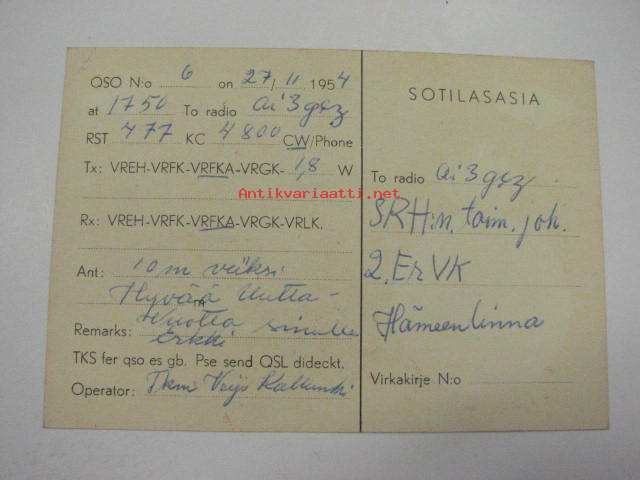 QSO N:o 6 on 27/11 1954
at 1750 To radio ai3gxz
RST 477 KC 4800 CW/Phone
Tx: VREH-VRFK-VRFKA-VRGK- 1,8 W
Rx: VREH-VRFK-VRFKA-VRGK-VRLK.
Ant: 10 m
m
Hyvää Uutta-
Remarks: Vuotta sinulle
Erkki
TKS fer qso es gb. Pse send QSL dideckt.
Operator: Veijo
SOTILASASIA
To radio ai3gxz
SRH:n. toim. joh.
2. ErVK
Hämeenlinna
Virkakirje N:o
Antikvariaatti.net